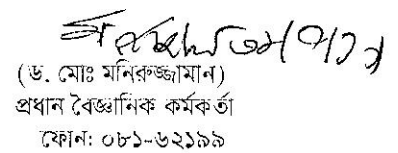 (ড. মোঃ মনিরুজ্জামান)
প্রধান বৈজ্ঞানিক কর্মকর্তা
ফোন: ০৮১-৬২১৯৯